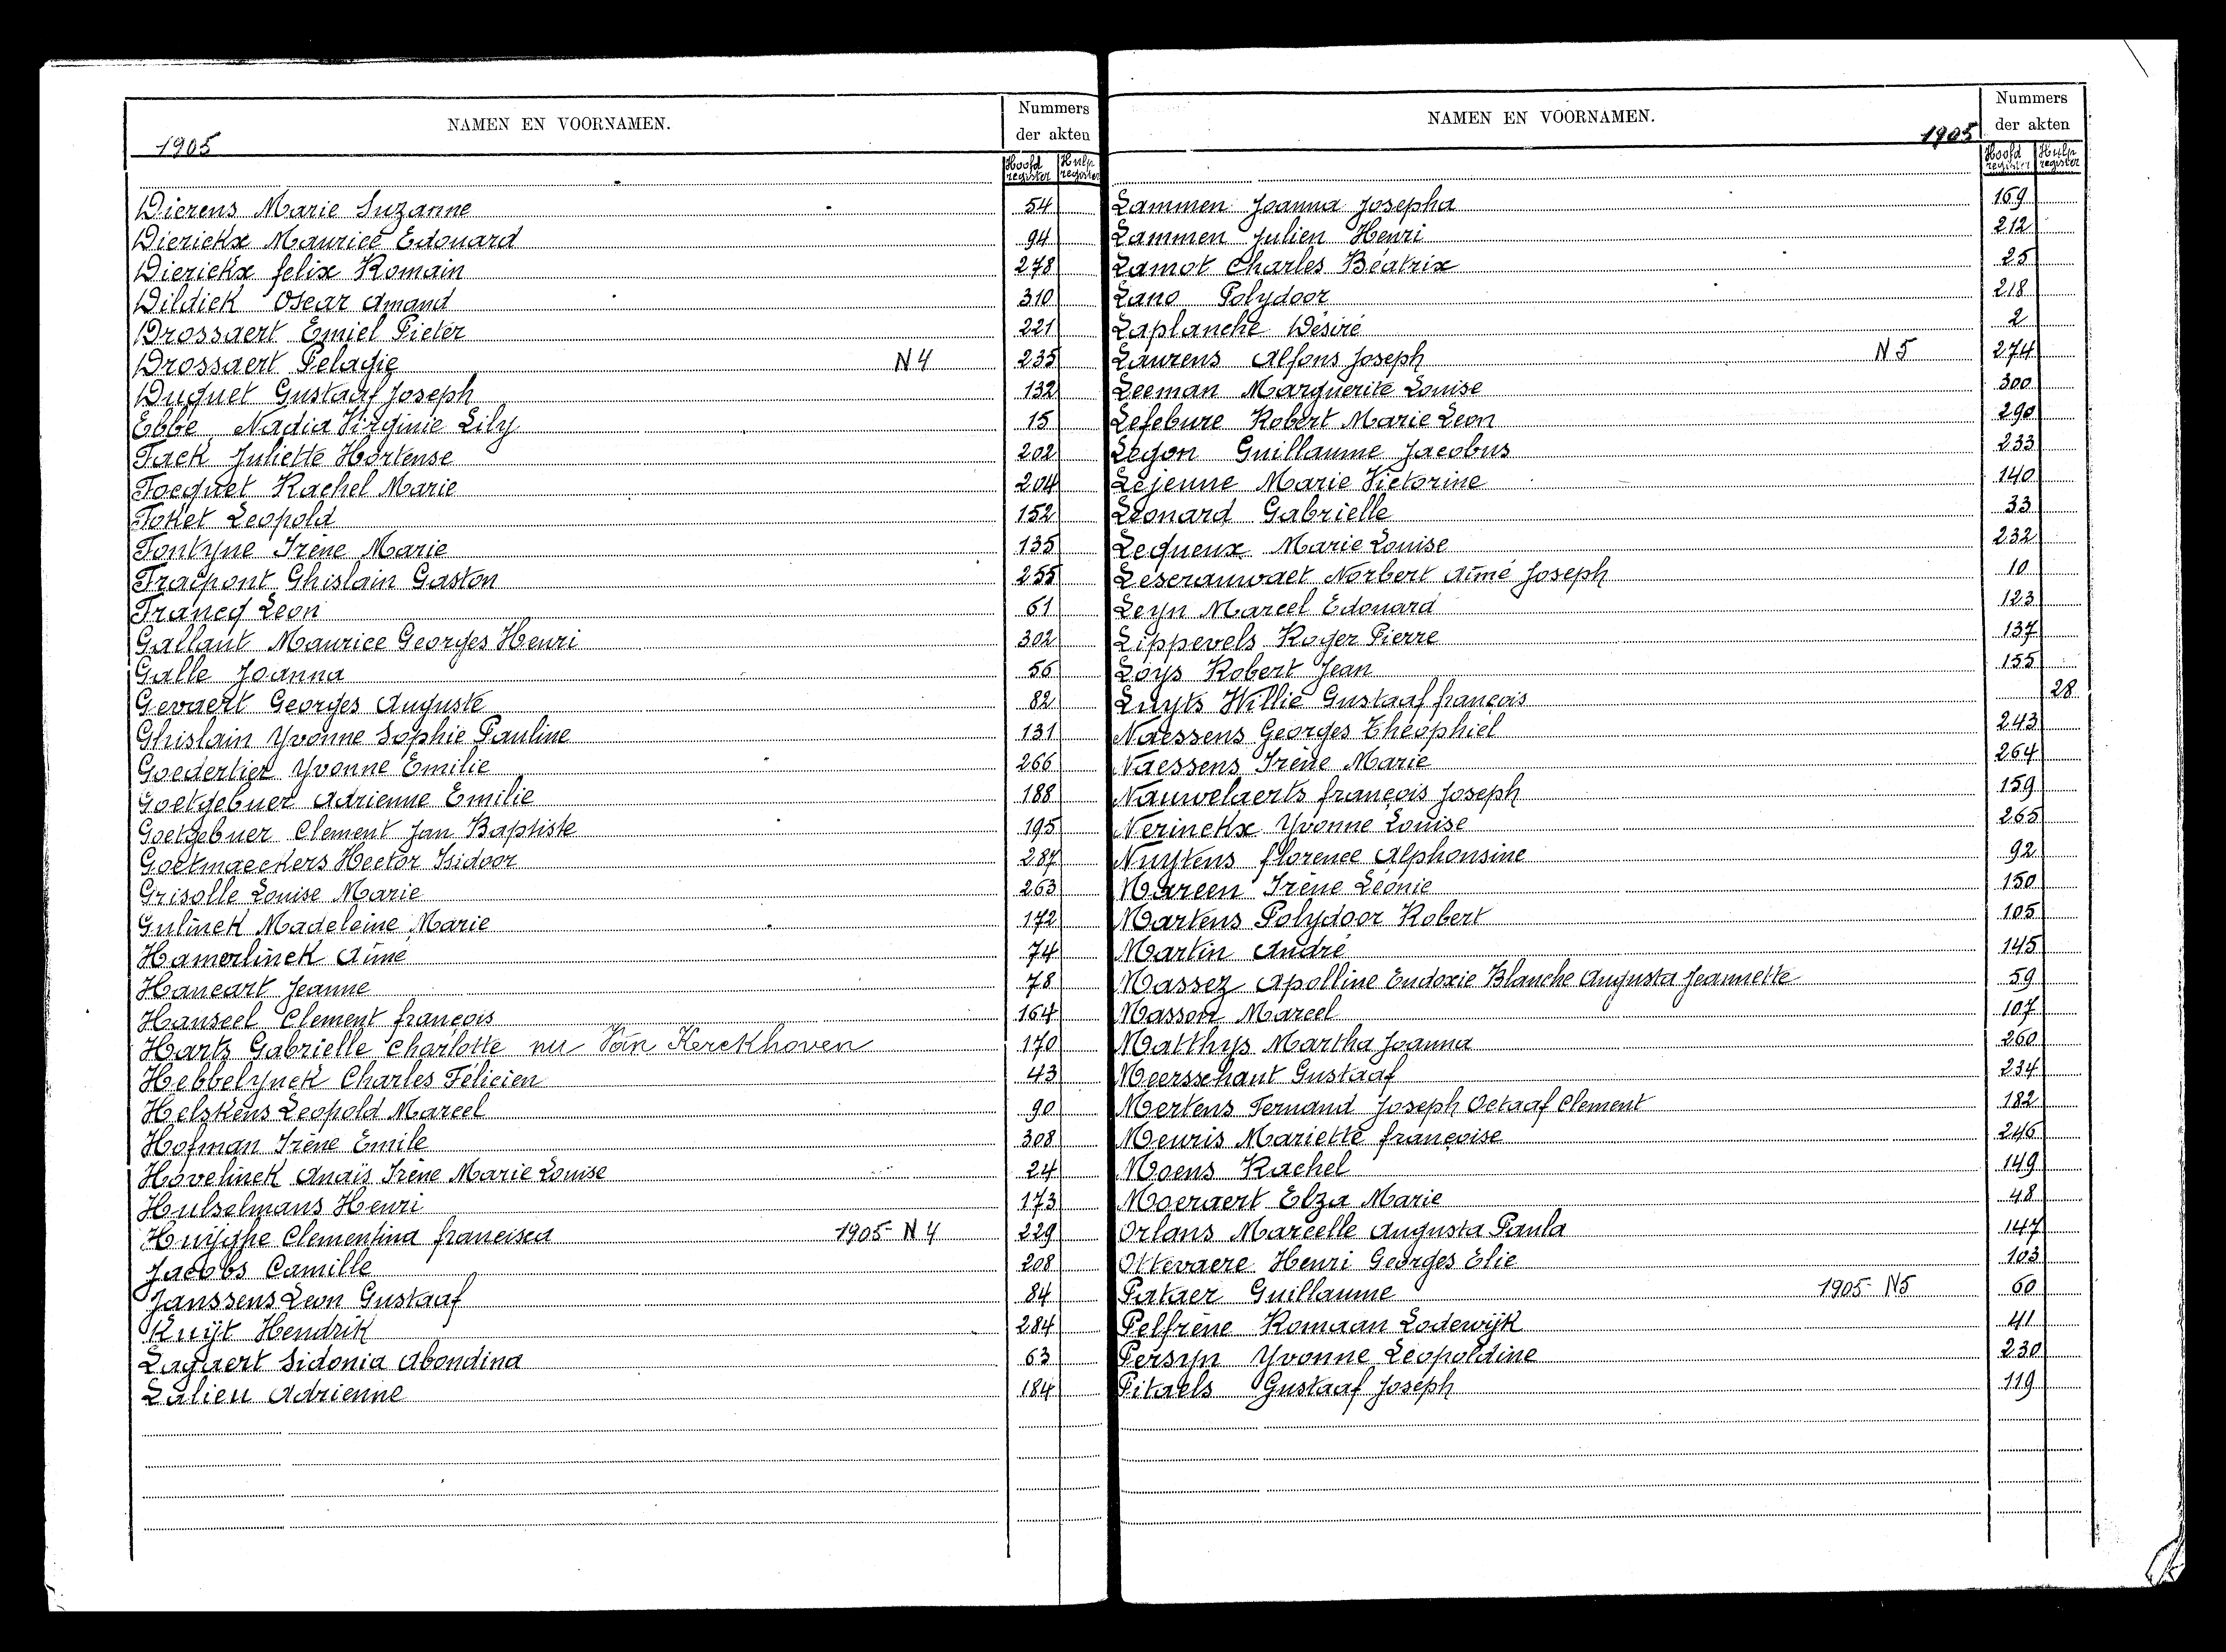 NAMEN EN VOORNAMEN.
Nummers
der akten
1905
Hoofd register
Hulp register
Dierens Marie Suzanne 54
Dierickx Maurice Edouard 94
Dierickx felix Romain 278
Dildick Oscar Amand 310
Drossaert Emiel Pieter 221
Drossaert Pelagie N4 235
Duquet Gustaaf Joseph 132
Ebbe Nadia Virginie Lily 15
Fack Juliette Hortense 202
Focquet Rachel Marie 204
Foket Leopold 152
Fontyne Irène Marie 135
Fraipont Ghislain Gaston 255
Francq Leon 61
Gallant Maurice Georges Henri 302
Galle Joanna 56
Gevaert Georges Auguste 82
Ghislain Yvonne Sophie Pauline 131
Goedertier Yvonne Emilie 266
Goetgebuer Adrienne Emilie 188
Goetgebuer Clement Jan Baptiste 195
Goetmaeckers Hector Isidoor 287
Grisolle Louise Marie 263
Gulinck Madeleine Marie 172
Hamerlinck Aimé 74
Hancart Jeanne 78
Hanseel Clement françois 164
Harts Gabrielle Charlotte nu Van Kerckhoven 170
Hebbelynck Charles Félicien 43
Helskens Leopold Marcel 90
Hofman Irène Emile 308
Hovelinck Anaïs Irène Marie Louise 24
Hulselmans Henri 173
Huijghe Clementina francisca 1905- N4 229
Jacobs Camille 208
Janssens Leon Gustaaf 84
Kuijt Hendrik 284
Lagaert Sidonia Abondina 63
Lalieu Adrienne 184
NAMEN EN VOORNAMEN.
1905
Nummers
der akten
Hoofd register
Hulp register
Lammen Joanna Josepha 169
Lammen Julien Henri 212
Lamot Charles Béatrix 25
Lano Polydoor 218
Laplanche Désiré 2
Laurens Alfons Joseph N5 274
Leeman Marguerite Louise 300
Lefebure Robert Marie Leon 290
Legon Guillaume Jacobus 233
Lejeune Marie Victorine 140
Leonard Gabrielle 33
Lequeux Marie Louise 232
Leserauwaet Norbert Aimé Joseph 10
Leyn Marcel Edouard 123
Lippevels Roger Pierre 137
Loys Robert Jean 155
Luyts Willie Gustaaf françois 28
Naessens Georges Théophiel 243
Naessens Irène Marie 264
Nauwelaerts françois Joseph 159
Nerinckx Yvonne Louise 265
Nuytens florence Alphonsine 92
Mareen Irène Léonie 150
Martens Polydoor Robert 105
Martin André 145
Massez Apolline Eudoxie Blanche Augusta Jeannette 59
Masson Marcel 107
Matthys Martha Joanna 260
Meersschaut Gustaaf 234
Mertens Fernand Joseph Octaaf Clement 182
Meuris Mariette françoise 246
Moens Rachel 149
Moeraert Elza Marie 48
Orlans Marcelle Augusta Paula 147
Ottevaere Henri Georges Elie 103
Pataer Guillaume 1905- N5 60
Pelfrène Romaan Lodewijk 41
Persyn Yvonne Léopoldine 230
Pitaels Gustaaf Joseph 119